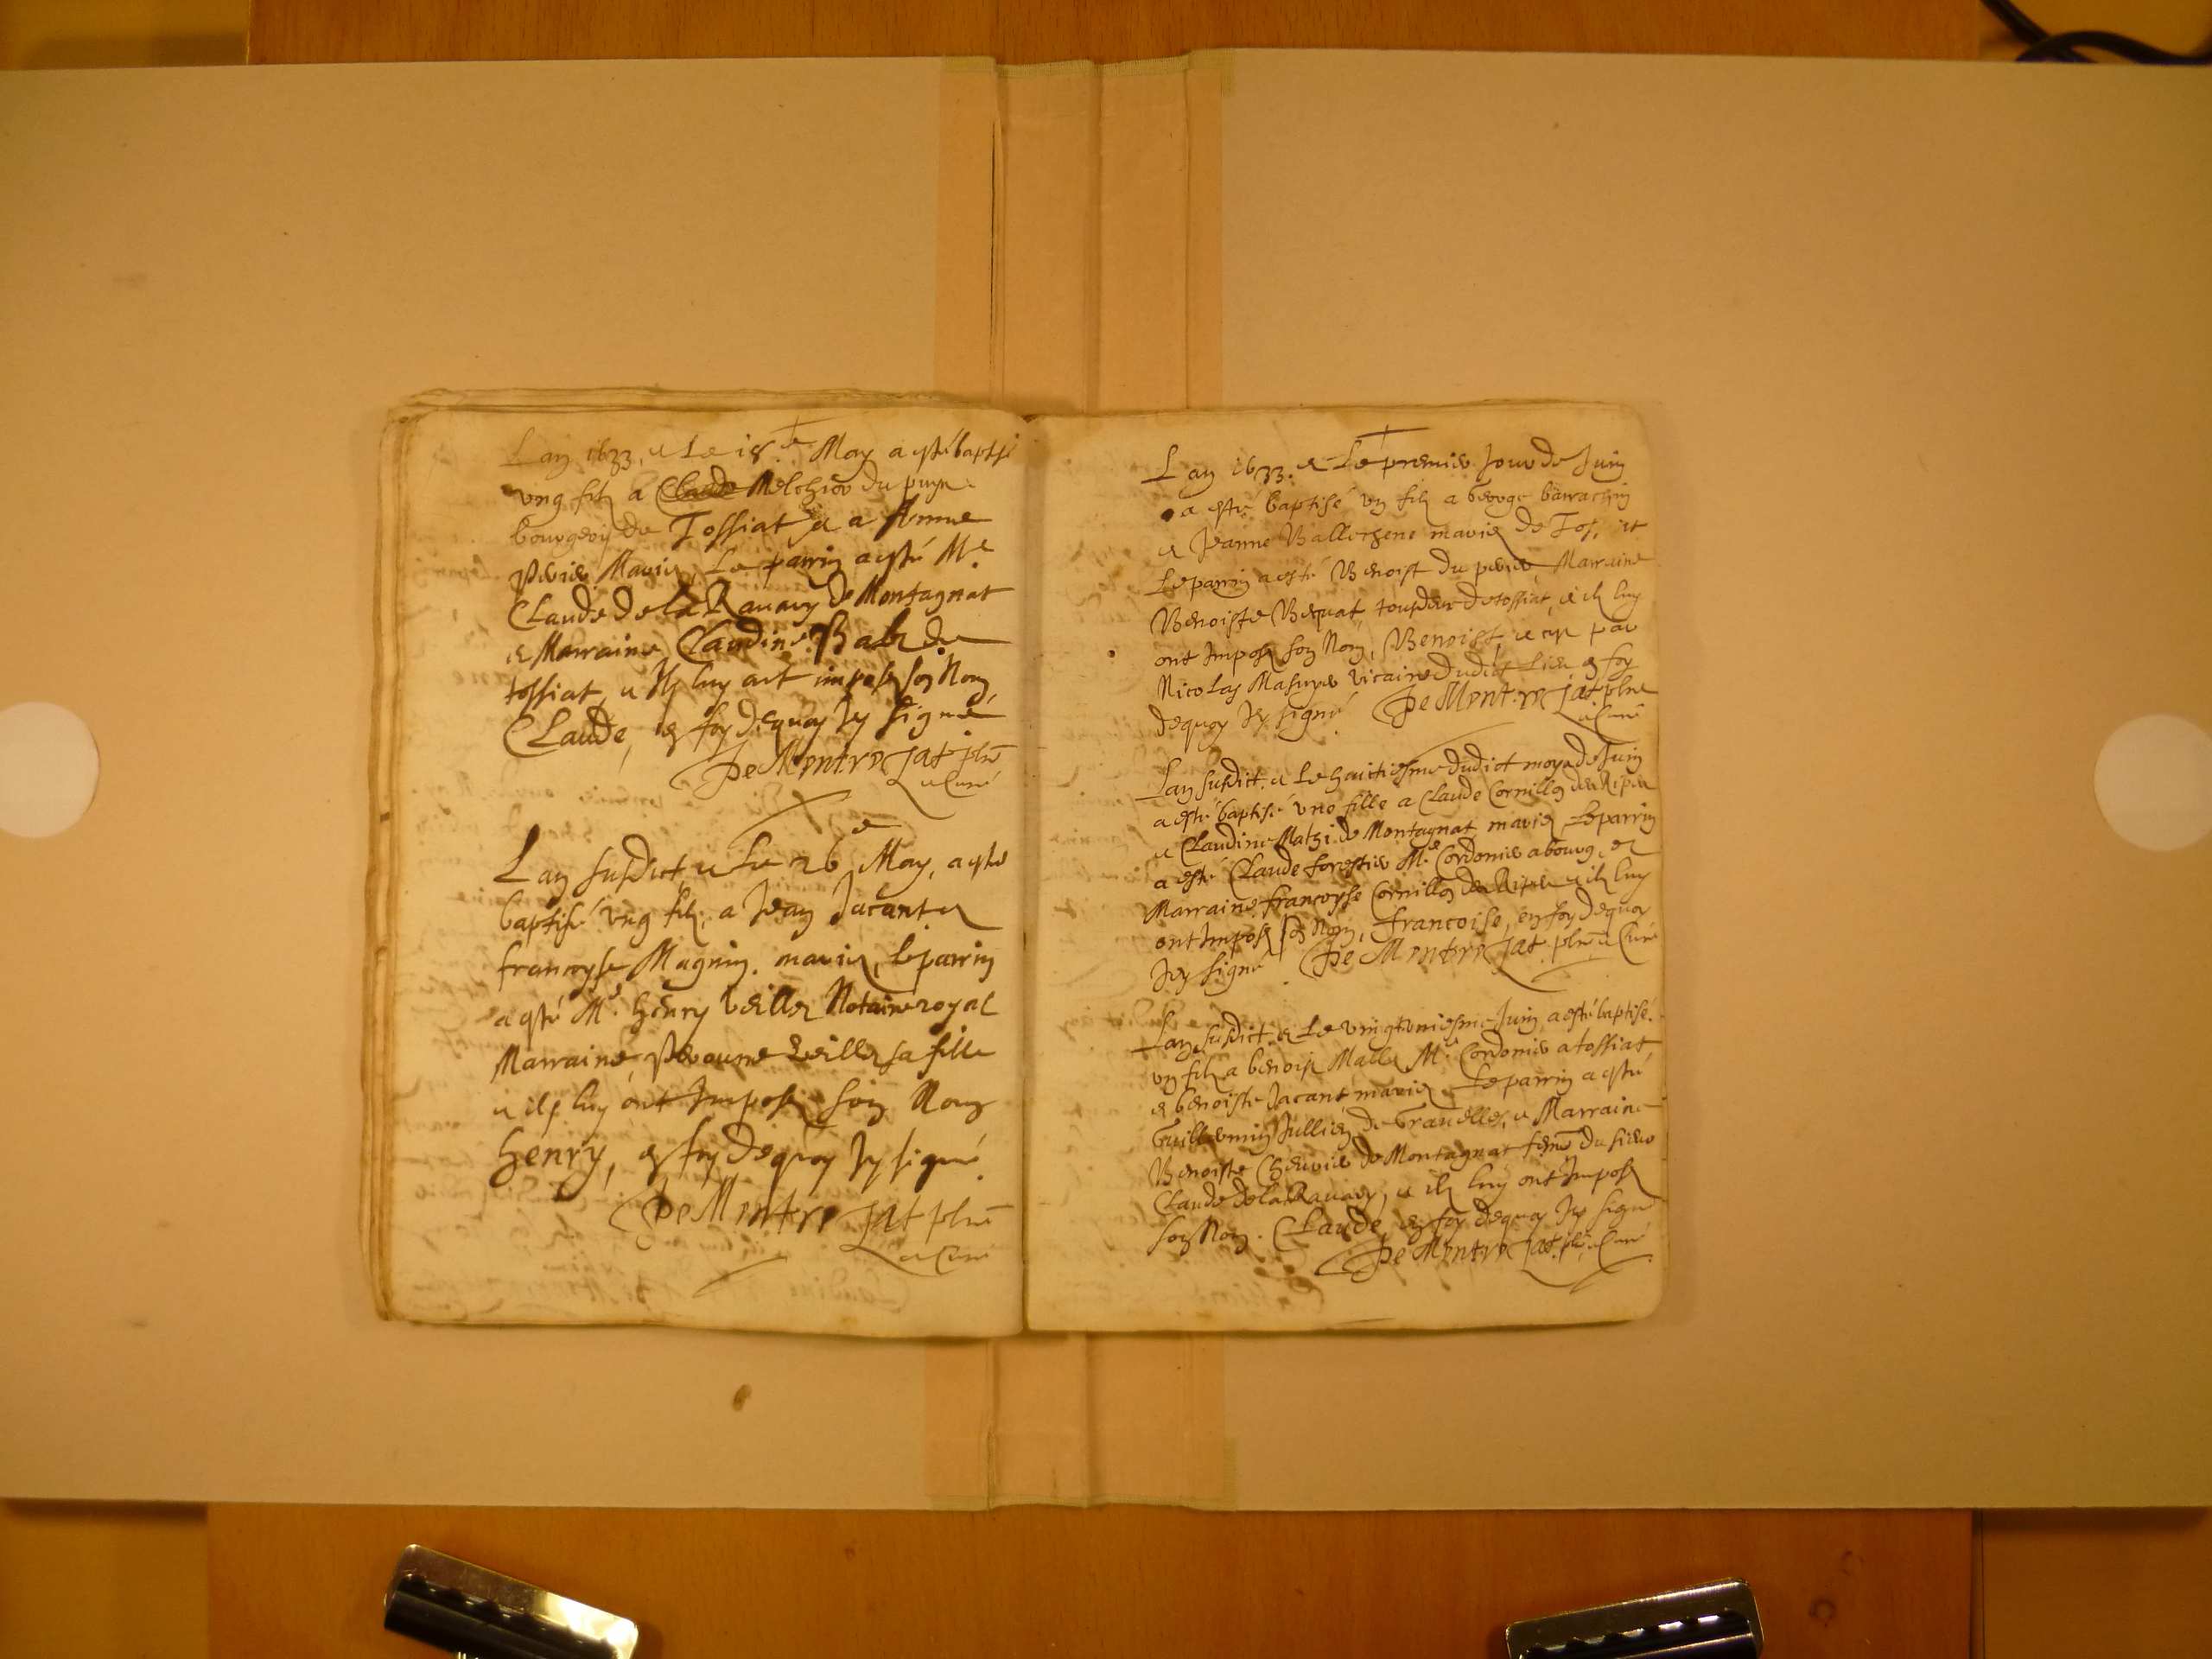 Lan 1633, et Le 18.e May a esté baptisé
vng filz a Claude Melchior du puys
bourgeois de Tossiat et a Anne
mariez, Le parrin a esté M.e
Claude de la Rauary de Montagnat
et Marraine Claudine de
tossiat, et Ilz luy ont imposé son Nom,
Claude, en foy dequoy Jey signé
De Montrejat pbre
et Curé
Lan susdict, et Le 26.e May, a esté
baptisé vng filz, a Jean Jacant et
francoyse Magnin. mariez, le parrin
a esté M.e henry veillez Notaire royal
Marraine, veillez sa fille
et ilz luy ont Imposé son Nom
henry, en foy dequoy Jey signé.
De Montrejat pbre
et Curé
Lan 1633. et Le premier Jour de Juin
a esté baptisé vn filz a George barrachin
et Jeanne mariez de
Le parrin a esté Benoist du perier, Marraine
Benoiste de tossiat, et ilz luy
ont Imposé son Nom, Benoist, et ce par
Nicolas Masuyer vicaire dudict Lieu en foy
dequoy Jey signé De Montrejat pbre
et Curé
Lan susdict, et Le huictiesme dudict moys de Juin
a esté baptisé vne fille a Claude Cornillon
et Claudine de Montagnat mariez, Le parrin
a esté Claude forestier M.e Cordonier a bourg, et
Marraine francoyse Cornillon et ilz luy
ont Imposé son Nom, francoise, en foy dequoy
Jey signé De Montrejat pbre et Curé
Lan susdict, et Le vingtuniesme Juin, a esté baptisé
vn filz a benoist Mallez M.e Cordonier a tossiat,
et benoiste Jacant mariez, Le parrin a esté
Guillermin Jullien de et Marraine
Benoiste de Montagnat feme du sieur
Claude de la Rauary, et ilz luy ont Imposé
son Nom. Claude, en foy dequoy Jey signé
De Montrejat pbre et Curé